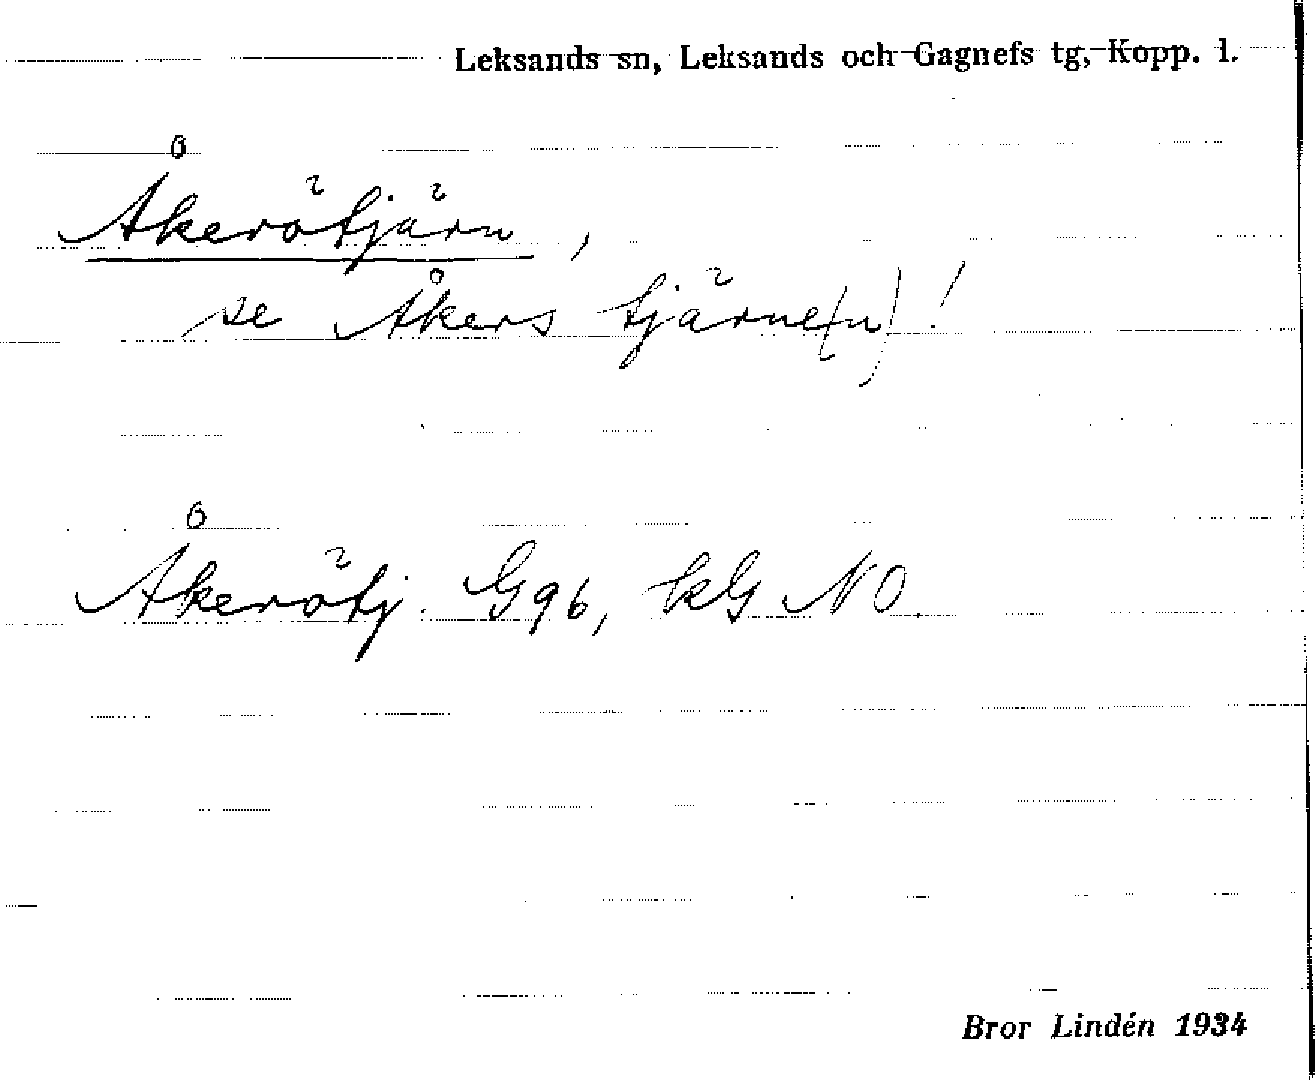 Leksands sn, Leksands och Gagnefs tg, Kopp. l.
Åkerötjärn,
se Åkers tjärne(n)!
Åkerötj. G96, kG NO.
Bror Lindén 1934